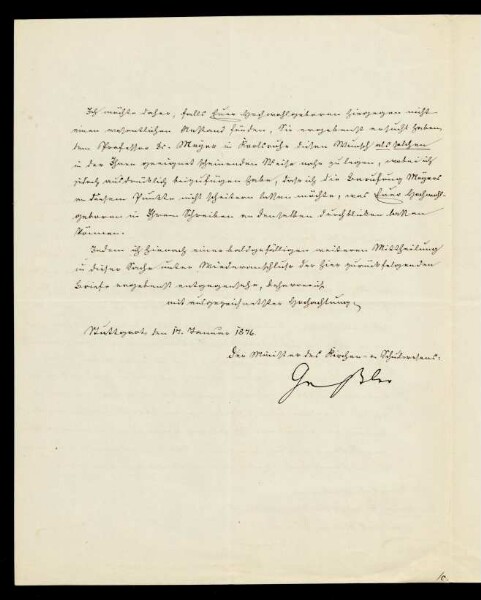 Ich möchte daher, falls Euer Hochwohlgeboren hiegegen nicht
einen wesentlichen Anstand finden, Sie ergebenst ersucht haben,
dem Professor Dr. Meyer in Karlsruhe diesen Wunsch als solchen
in der Ihnen geeignet scheinenden Weise nahe zu legen, wobei ich
jedoch ausdrücklich beizufügen habe, daß ich die Berufung Meyers
an diesem Punkte nicht scheitern lassen möchte, was Euer Hochwohl-
geboren in Ihrem Schreiben an denselben durchblicken lassen
können.
Indem ich hienach einer baldgefälligen weiteren Mittheilung
in dieser Sache unter Wiederanschluß der hier zurückfolgenden
Briefe ergebenst entgegensehe, beharre ich
mit ausgezeichnetster Hochachtung
Stuttgart den 14. Januar 1876.
Der Minister des Kirchen- u. Schulwesens:
Geßler